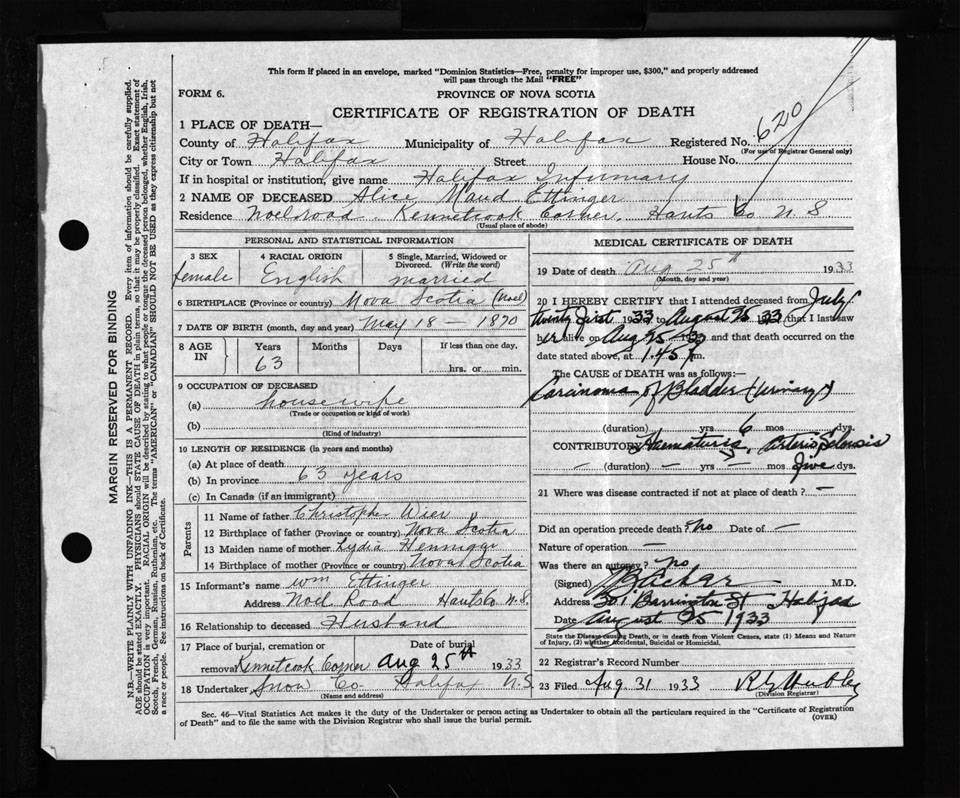 This form if placed in an envelope, marked "Dominion Statistics—Free, penalty for improper use, $300," and properly addressed
will pass through the Mail "FREE"
FORM 6.
PROVINCE OF NOVA SCOTIA
CERTIFICATE OF REGISTRATION OF DEATH
1 PLACE OF DEATH—
County of Halifax Municipality of Halifax Registered No. 620
(For use of Registrar General only)
City or Town Halifax Street House No.
If in hospital or institution, give name Halifax Infirmary
2 NAME OF DECEASED Alice Maud Ettinger
Residence Noel road. Kennetcook Corner. Hants Co N S
(Usual place of abode)
PERSONAL AND STATISTICAL INFORMATION
3 SEX 4 RACIAL ORIGIN 5 Single, Married, Widowed or
Divorced. (Write the word)
female English married
6 BIRTHPLACE (Province or country) Nova Scotia (Noel)
7 DATE OF BIRTH (month, day and year) May 18 — 1870
8 AGE IN Years Months Days If less than one day,
63 hrs. or min.
9 OCCUPATION OF DECEASED
(a) housewife
(Trade or occupation or kind of work)
(b)
(Kind of industry)
10 LENGTH OF RESIDENCE (in years and months)
(a) At place of death
(b) In province 63 years
(c) In Canada (if an immigrant)
Parents
11 Name of father Christopher Wier
12 Birthplace of father (Province or country) Nova Scotia
13 Maiden name of mother Lydia Hennigar
14 Birthplace of mother (Province or country) Nova Scotia
15 Informant's name Wm Ettinger
Address Noel Road Hants Co N.S.
16 Relationship to deceased Husband
17 Place of burial, cremation or Date of burial
removal Kennetcook Corner Aug 25th 1933
18 Undertaker Snow Co— Halifax N.S.
(Name and address)
MEDICAL CERTIFICATE OF DEATH
19 Date of death Aug 25th 1933
(Month, day and year)
20 I HEREBY CERTIFY that I attended deceased from July
twenty first 1933 to August 25 1933, that I last saw
her alive on Aug 25 1933 and that death occurred on the
date stated above, at 1.45 m.
The CAUSE of DEATH was as follows:—
Carcinoma of Bladder (Urinary)
(duration) yrs 6 mos. dys.
CONTRIBUTORY Haematuria, Arterio Sclerosis
— (duration) — yrs — mos. Five dys.
21 Where was disease contracted if not at place of death? —
Did an operation precede death? No Date of —
Nature of operation —
Was there an autopsy? No
(Signed) M.D.
Address 301 Barrington St Halifax
Date August 25 1933
State the Disease causing Death, or in death from Violent Causes, state (1) Means and Nature
of Injury, (2) whether Accidental, Suicidal or Homicidal.
22 Registrar's Record Number
23 Filed Aug 31 1933
(Division Registrar)
Sec. 46—Vital Statistics Act makes it the duty of the Undertaker or person acting as Undertaker to obtain all the particulars required in the "Certificate of Registration
of Death" and to file the same with the Division Registrar who shall issue the burial permit.
(OVER)
MARGIN RESERVED FOR BINDING
N.B.—WRITE PLAINLY WITH UNFADING INK—THIS IS A PERMANENT RECORD. Every item of information should be carefully supplied.
AGE should be stated EXACTLY. PHYSICIANS should STATE CAUSE OF DEATH in plain terms, so that it may be properly classified. Exact statement of
OCCUPATION is very important. RACIAL ORIGIN will be described by stating to what people or race the deceased person belonged, whether English, Irish,
Scotch, French, German, Russian, Ruthenian, etc. The terms "AMERICAN" or "CANADIAN" SHOULD NOT BE USED as they express citizenship but not
a race or people. See instructions on back of Certificate.